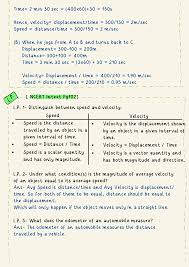 Time= 2 min 30 sec = (2×60+30) = 150
Hence, velocity= displacement/time = 300/150 = 2m/sec
Speed = distance/time = 300/150 = 2 m/sec
(b) When he jogs from A to B and turns back to C
Displacement= 300-100 = 200m
Distance= 300+100 = 400m
Time = 3 min 30 sec =
Velocity= displacement / time = 200/210 = 0.95 m/sec
Speed= distance / time = 400/210 = 1.90 m/sec
[ NCERT Intext Pg102]
I.P. 1- Distinguish between speed and velocity.
Speed
Velocity
Speed is the distance travelled by an object in a given interval of time.
Velocity is the displacement shown by an object in a given interval of time.
Speed = Distance / Time
Velocity = Displacement / Time
Speed is a scalar quantity and has only magnitude.
Velocity is a vector quantity and has both magnitude and direction.
I.P. 2- Under what condition(s) is the magnitude of average velocity
of an object equal to its average speed?
Ans- Avg Speed is distance/time and Avg Velocity is displacement/
time. So for both of them to be equal, distance should be equal to
the displacement.
Which will only happen if the object moves only in a straight line.
I.P. 3- What does the odometer of an automobile measure?
Ans- The odometer of an automobile measures the distance
travelled by a vehicle.